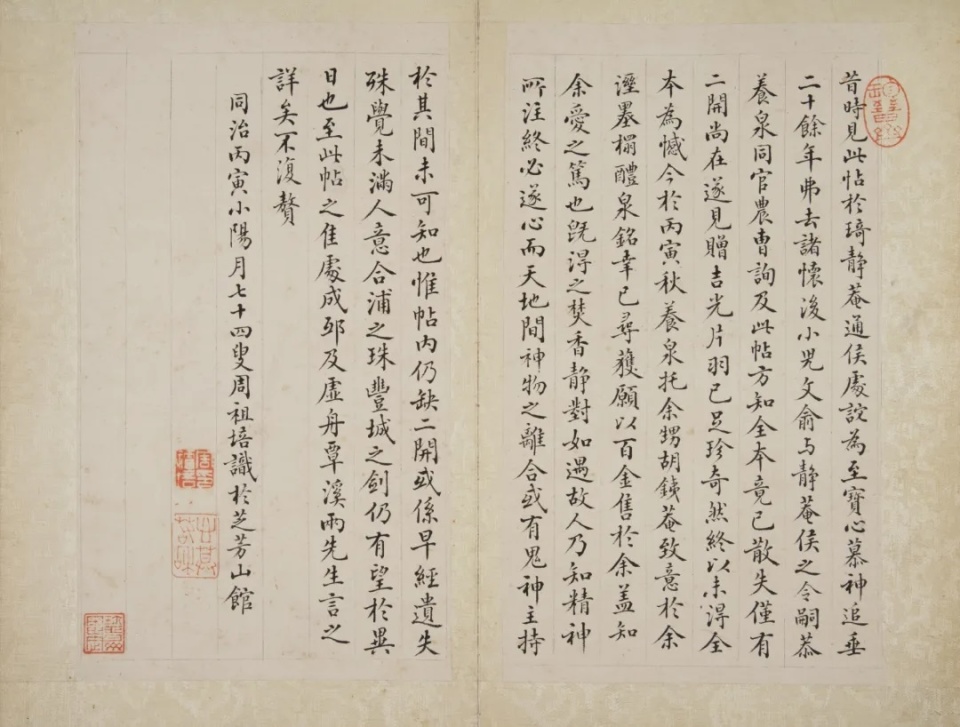 昔時見此帖於琦靜菴通侯處詫為至寶心慕神追垂
二十餘年弗去諸懷後小兒文俞与靜菴侯之令嗣恭
養泉同官農曹詢及此帖方知全本竟已散失僅有
二開尚在遂見贈吉光片羽已足珍奇然終以未淂全
本為憾今於丙寅秋養泉托余甥胡銕菴致意於余
邇墨榻醴泉銘幸已尋獲願以百金售於余盖知
余愛之篤也既淂之焚香静對如遇故人乃知精神
所注終必遂心而天地間神物之離合或有鬼神主持
於其間未可知也惟帖内仍缺二開或係早經遺失
殊覺未滿人意合浦之珠豐城之劍仍有望於異
日也至此帖之佳處成邸及虚舟覃溪兩先生言之
詳矣不復贅
同治丙寅小陽月七十四叟周祖培識於芝芳山館